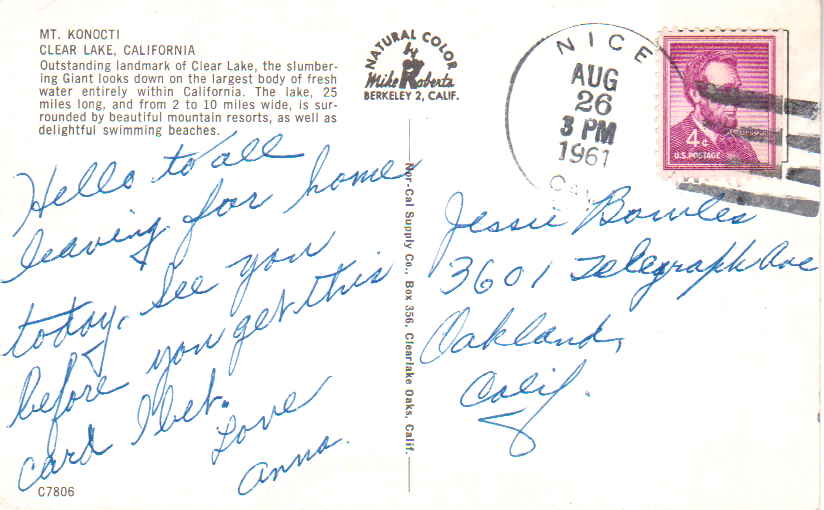 MT. KONOCTI
CLEAR LAKE, CALIFORNIA
Outstanding landmark of Clear Lake, the slumber-
ing Giant looks down on the largest body of fresh
water entirely within California. The lake, 25
miles long, and from 2 to 10 miles wide, is sur-
rounded by beautiful mountain resorts, as well as
delightful swimming beaches.
Hello to all
leaving for home
today, See you
before you get this
card I bet.
Love
Anna.
C7806
NATURAL COLOR
by
Mike Roberts
BERKELEY 2, CALIF.
Nor-Cal Supply Co., Box 356, Clearlake Oaks, Calif.
NICE
AUG
26
3 PM
1961
4¢
U.S. POSTAGE
Jessie Bowles
3601 Telegraph Ave
Oakland,
Calif.